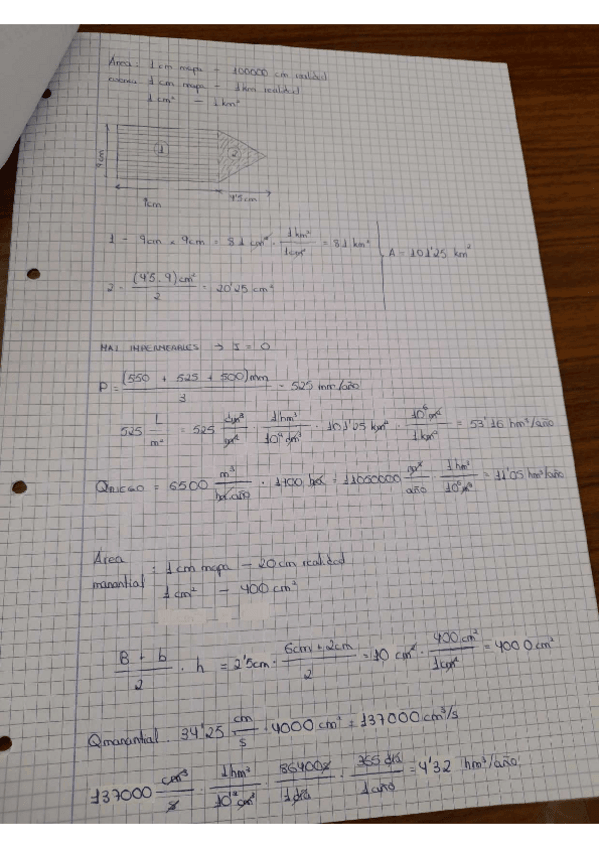 Área: 1 cm mapa - 100000 cm realidad
cuenca 1 cm mapa - 1km realidad
1 cm² - 1 km²
9cm
1
2
9cm
4'5cm
1 - 9cm x 9cm = 81 cm² · 1km² / 1cm² = 81 km²
A = 101'25 km²
2 - (4'5 · 9)cm² / 2 = 20'25 cm²
MAT IMPERMEABLES → I = 0
P = (550 + 525 + 500)mm / 3 = 525 mm/año
525 L / m² = 525 dm³ / m² · 1hm³ / 10⁹ dm³ · 101'25 km² · 10⁶ m² / 1km² = 53'16 hm³/año
QRIEGO = 6500 m³ / ha·año · 1700 ha = 11050000 m³ / año · 1hm³ / 10⁶ m³ = 11'05 hm³/año
Área manantial : 1cm mapa - 20cm realidad
1 cm² - 400 cm²
B + b / 2 · h = 2'5cm · 6cm + 2cm / 2 = 10 cm² · 400 cm² / 1cm² = 4000 cm²
Qmanantial. 34'25 cm / s · 4000 cm² = 137000 cm³/s
137000 cm³ / s · 1hm³ / 10¹² cm³ · 86400s / 1 día · 365 días / 1 año = 4'32 hm³/año.